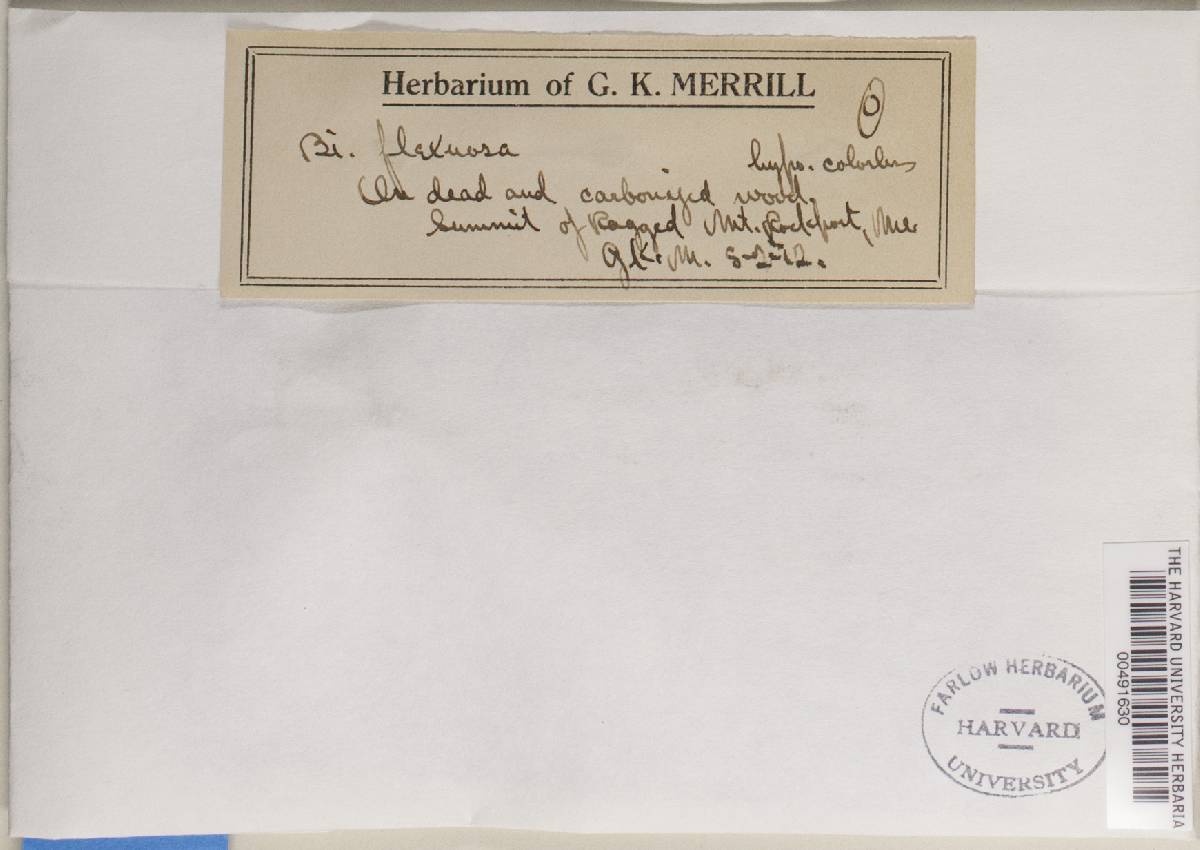 Herbarium of G. K. MERRILL
Bi. flexuosa
hypo. colorless
On dead and carbonized wood.
Summit of Ragged Mt. Rockport, Me
G.K.M. 5-2-12.
FARLOW HERBARIUM
HARVARD
UNIVERSITY
THE HARVARD UNIVERSITY HERBARIA
00491630